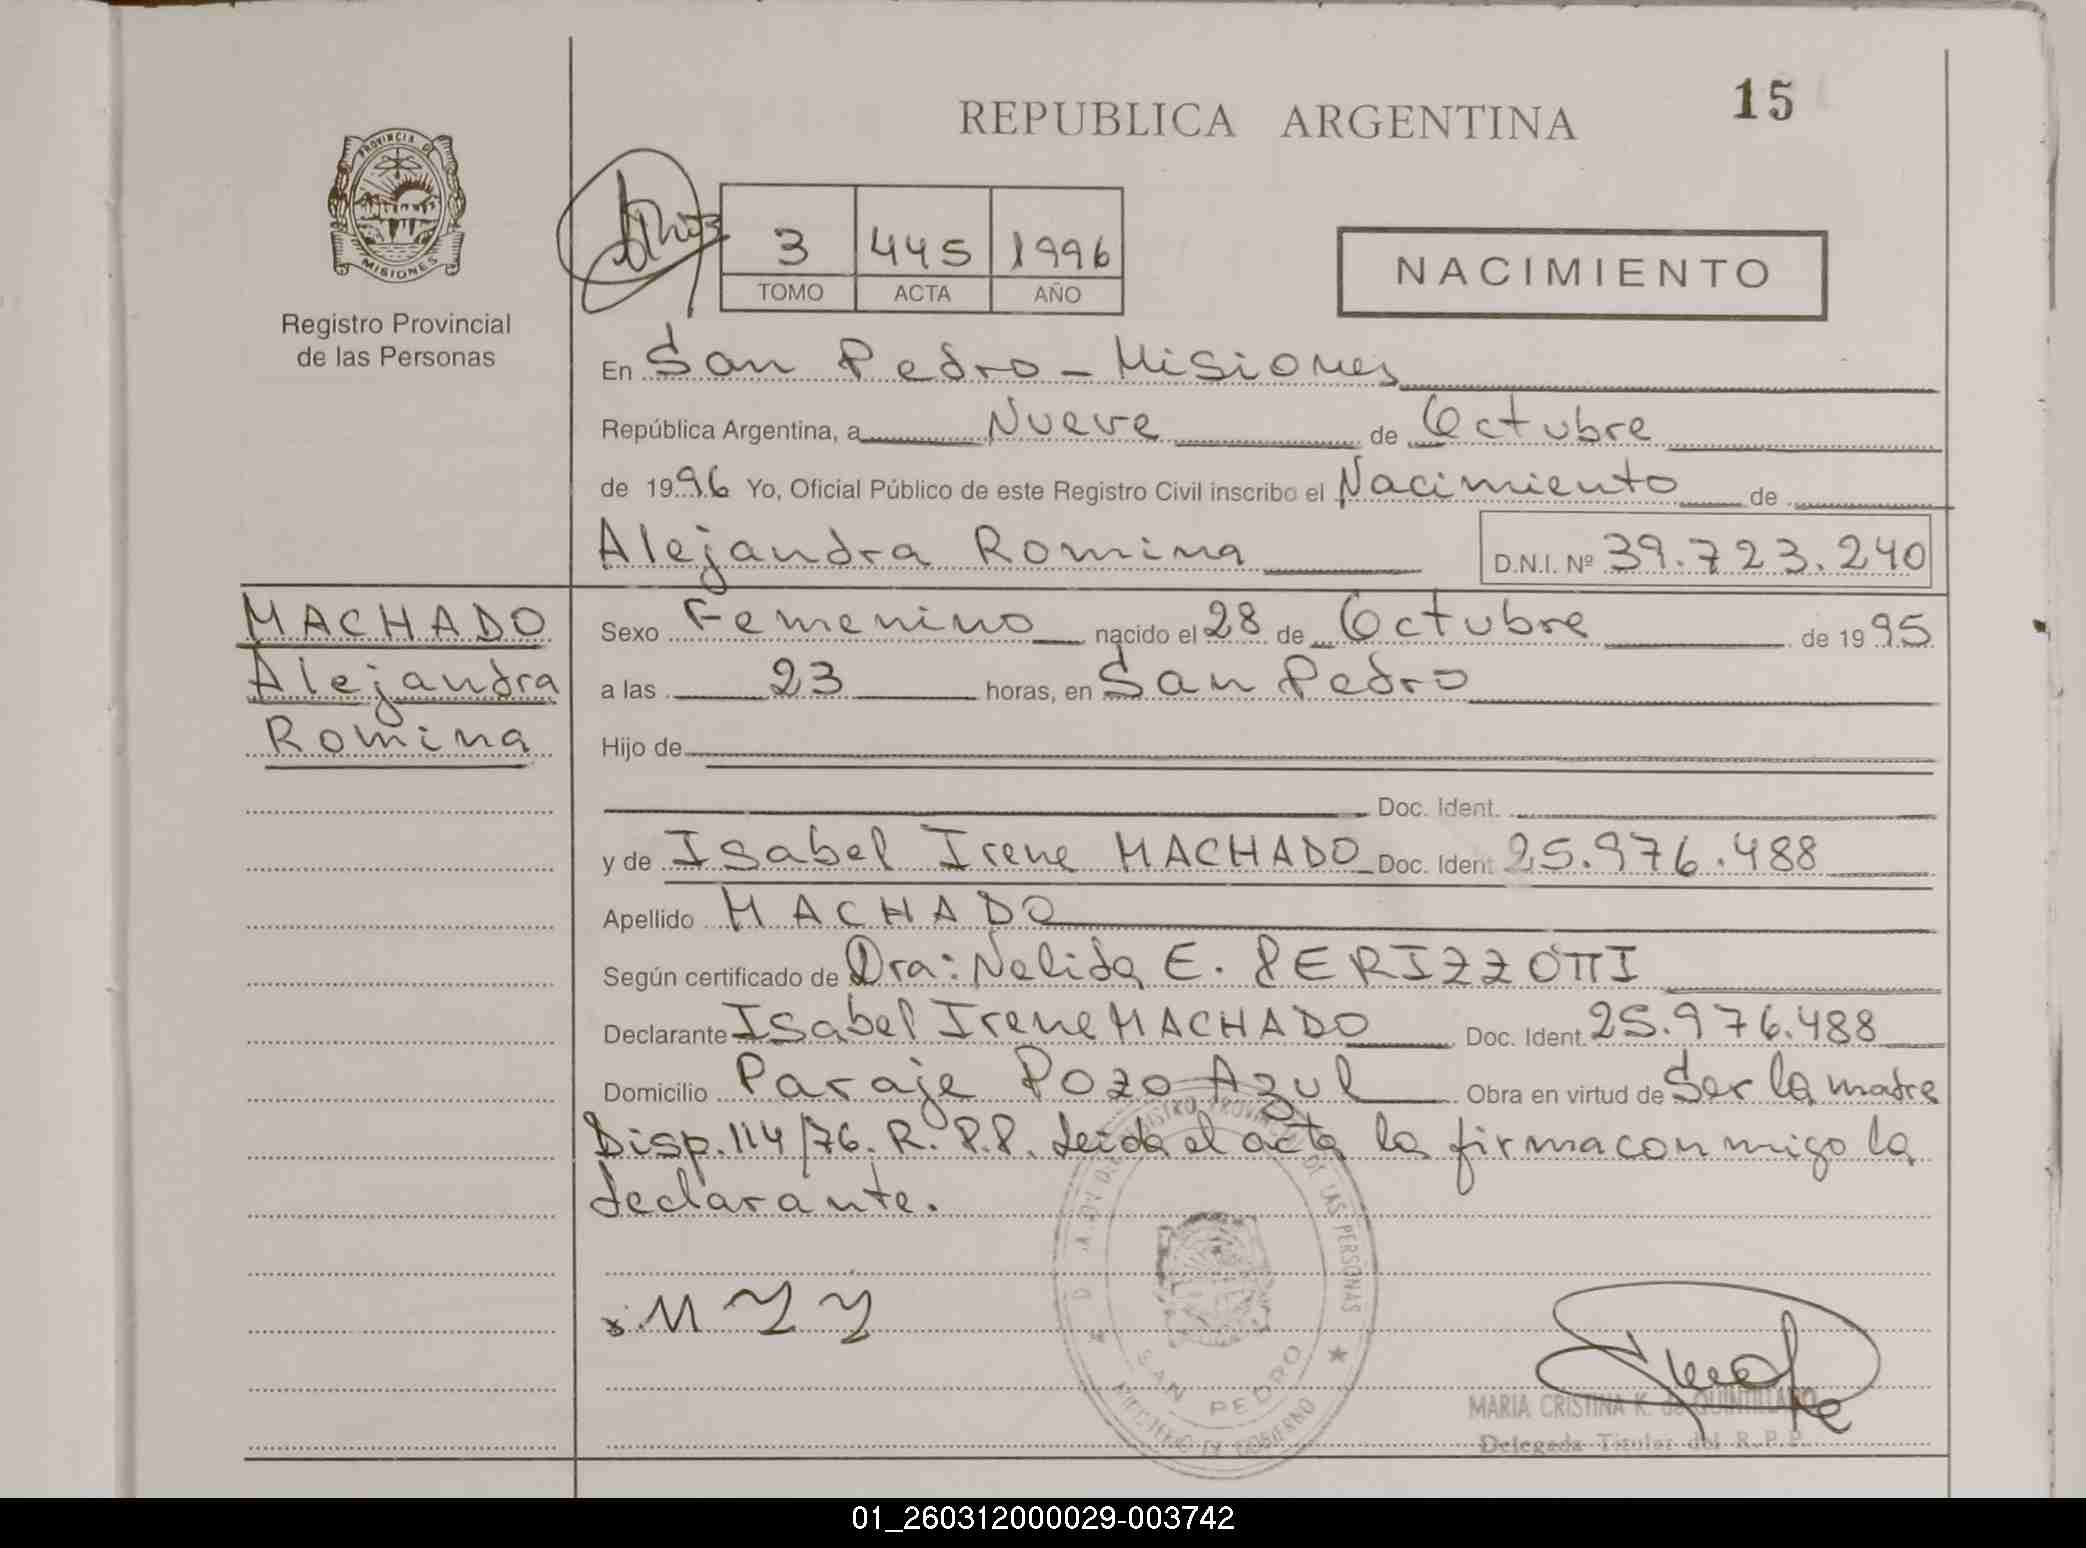 REPUBLICA ARGENTINA
15
PROVINCIA DE
MISIONES
Registro Provincial
de las Personas
3 445 1996
TOMO ACTA AÑO
NACIMIENTO
En San Pedro - Misiones
República Argentina, a Nueve de Octubre
de 1996 Yo, Oficial Público de este Registro Civil inscribo el Nacimiento de
Alejandra Romina D.N.I. Nº 39.723.240
MACHADO
Alejandra
Romina
Sexo Femenino nacido el 28 de Octubre de 1995
a las 23 horas, en San Pedro
Hijo de
Doc. Ident.
y de Isabel Irene MACHADO Doc. Ident 25.976.488
Apellido MACHADO
Según certificado de Dra: Nelida E. PERIZZOTTI
Declarante Isabel Irene MACHADO Doc. Ident. 25.976.488
Domicilio Paraje Pozo Azul Obra en virtud de Ser la madre
Disp. 114/76. R.P.P. Leida el acta la firma con migo la
declarante.
REGISTRO PROVINCIAL DE LAS PERSONAS
SAN PEDRO
MINISTERIO DE GOBIERNO
MARIA CRISTINA K. de
Delegada Titular del R.P.P.
01_260312000029-003742